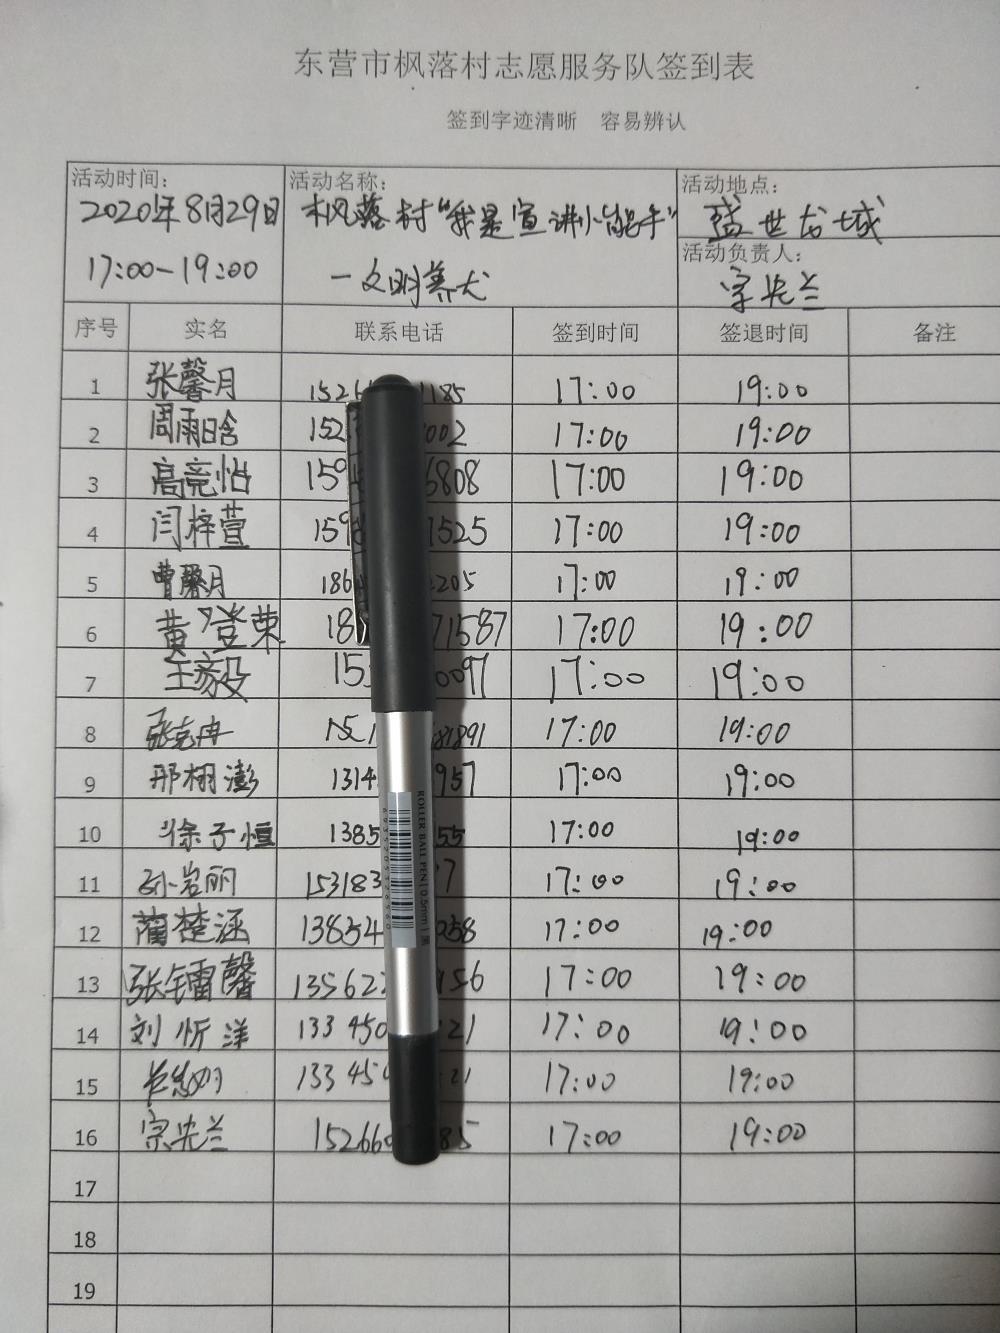 东营市枫落村志愿服务队签到表
签到字迹清晰 容易辨认
活动时间： 活动名称： 活动地点：
2020年8月29日 枫落村“我是宣讲小能手” 盛世龙城
17:00-19:00 一文明养犬
活动负责人：
宗先兰
序号 实名 联系电话 签到时间 签退时间 备注
1 张馨月 1526 1185 17:00 19:00
2 周雨晗 152 002 17:00 19:00
3 高竞怡 159 6808 17:00 19:00
4 闫梓萱 159 1525 17:00 19:00
5 曹馨月 186 2205 17:00 19:00
6 黄登荣 18 71587 17:00 19:00
7 王彦殳 15 0097 17:00 19:00
8 张克冉 1521 81891 17:00 19:00
9 邢栩澎 1314 957 17:00 19:00
10 徐子恒 1385 55 17:00 19:00
11 孙岩丽 153183 7 17:00 19:00
12 蔺楚涵 13854 058 17:00 19:00
13 张镭馨 135622 156 17:00 19:00
14 刘忻洋 133450 21 17:00 19:00
15 133450 21 17:00 19:00
16 宗先兰 152660 85 17:00 19:00
17
18
19
ROLLER BALL PEN 0.5mm 黑